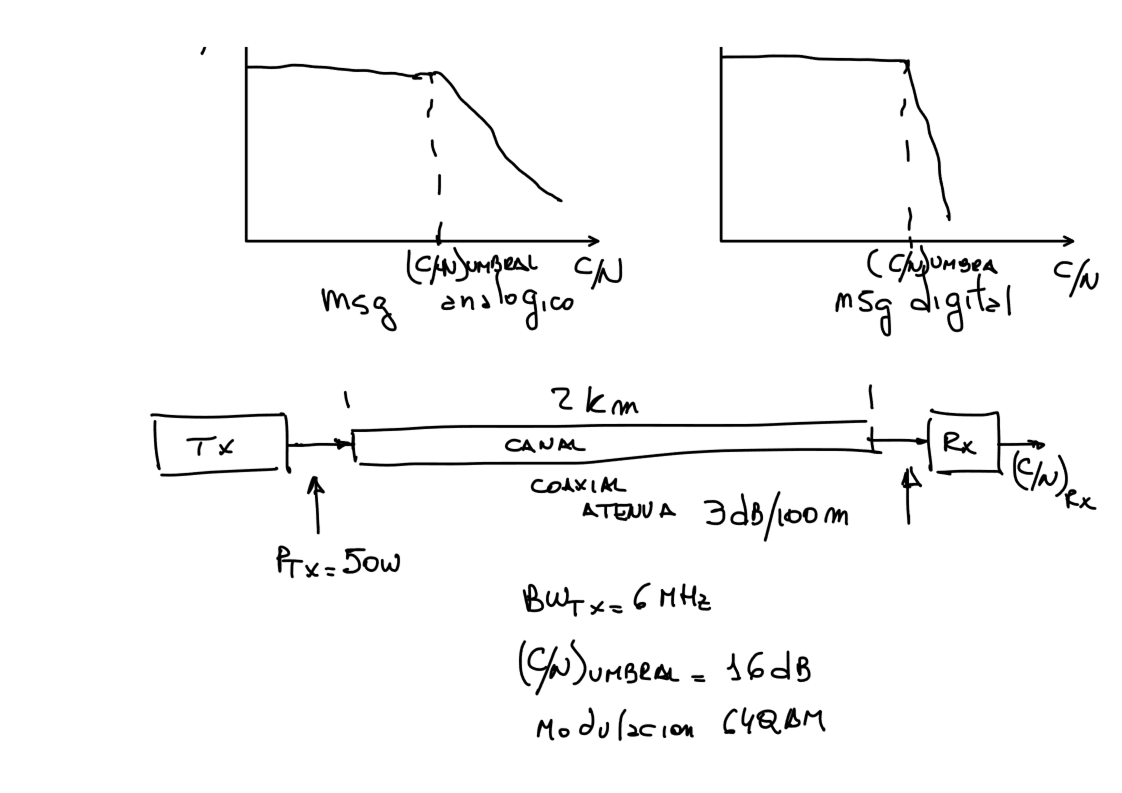 (C/N)UMBRAL C/N
msg analogico
(C/N)UMBRA C/N
msg digital
2 km
Tx
CANAL
Rx
(C/N)Rx
COAXIAL
ATENUA 3 dB/100 m
PTx = 50W
BWTx = 6 MHz
(C/N)UMBRAL = 16 dB
Modulacion 64QAM